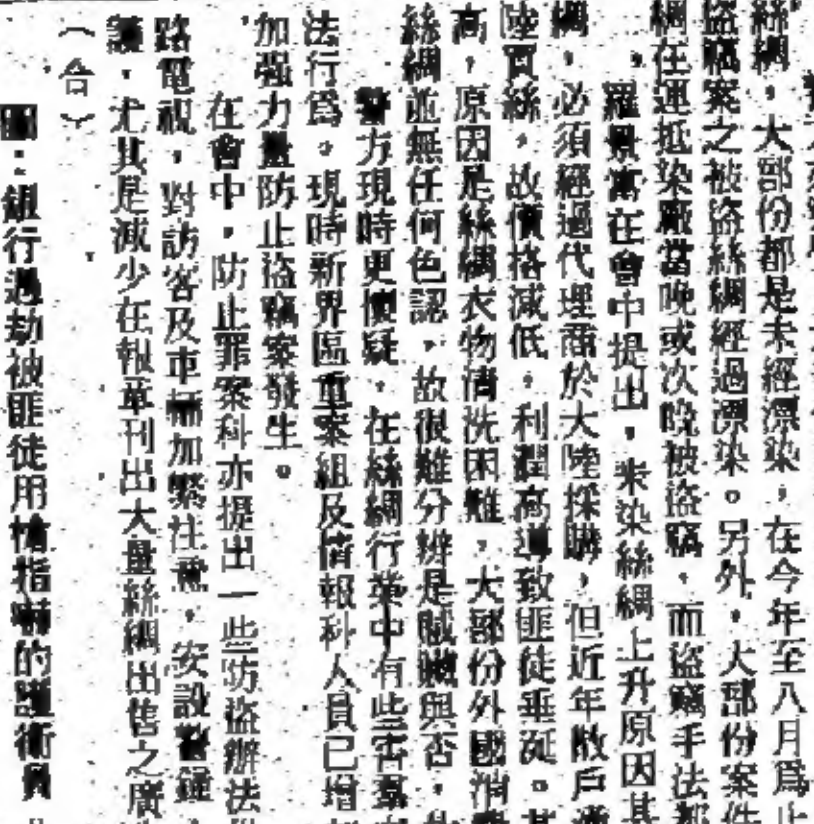 絲綢，大部份都是未經漂染，在今年至八月爲止
盜竊案之被盜絲綢經過漂染。另外，大部份案件
綢在運抵染廠當晚或次晚被盜竊，而盜竊手法都
，羅景富在會中提出，未染絲綢上升原因其
綢，必須經過代理商於大陸採購，但近年散戶
陸買絲，故價格減低，利潤高導致匪徒垂涎。其
高，原因是絲綢衣物清洗困難，大部份外國消
絲綢並無任何色認，故很難分辨是賊贓與否，
警方現時更懷疑，在絲綢行業中有些害羣
法行爲。現時新界區重案組及情報科人員已增
加强力量防止盜竊案發生。
在會中，防止罪案科亦提出一些防盜辦法
路電視，對訪客及車輛加緊注意，安設警鐘
，尤其是減少在報章刊出大量絲綢出售之廣
（合）
圖：銀行遇劫被匪徒用槍指嚇的護衞員